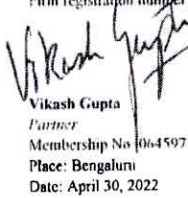 Firm registration number
Vikash Gupta
Vikash Gupta
Partner
Membership No 064597
Place: Bengaluru
Date: April 30, 2022